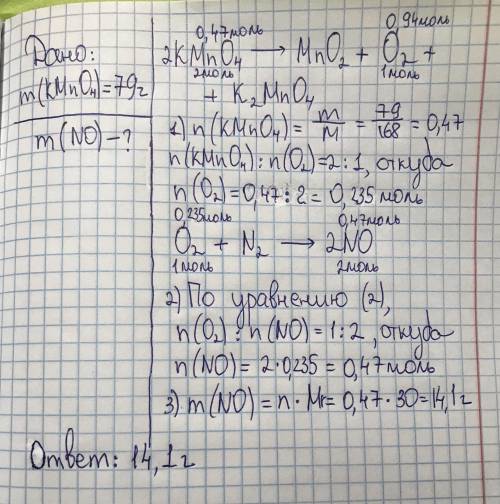 Дано:
m(KMnO₄)=79г
m(NO)-?
0,47моль 0,94моль
2KMnO₄ → MnO₂ + O₂ +
2моль 1моль
+ K₂MnO₄
1) n(KMnO₄) = m/M = 79/168 = 0,47
n(KMnO₄) : n(O₂) = 2:1, откуда
n(O₂) = 0,47:2 = 0,235 моль
0,235моль 0,47моль
O₂ + N₂ → 2NO
1моль 2моль
2) По уравнению (2),
n(O₂) : n(NO) = 1:2, откуда
n(NO) = 2·0,235 = 0,47моль
3) m(NO) = n · Mr = 0,47·30 = 14,1г
Ответ: 14,1г